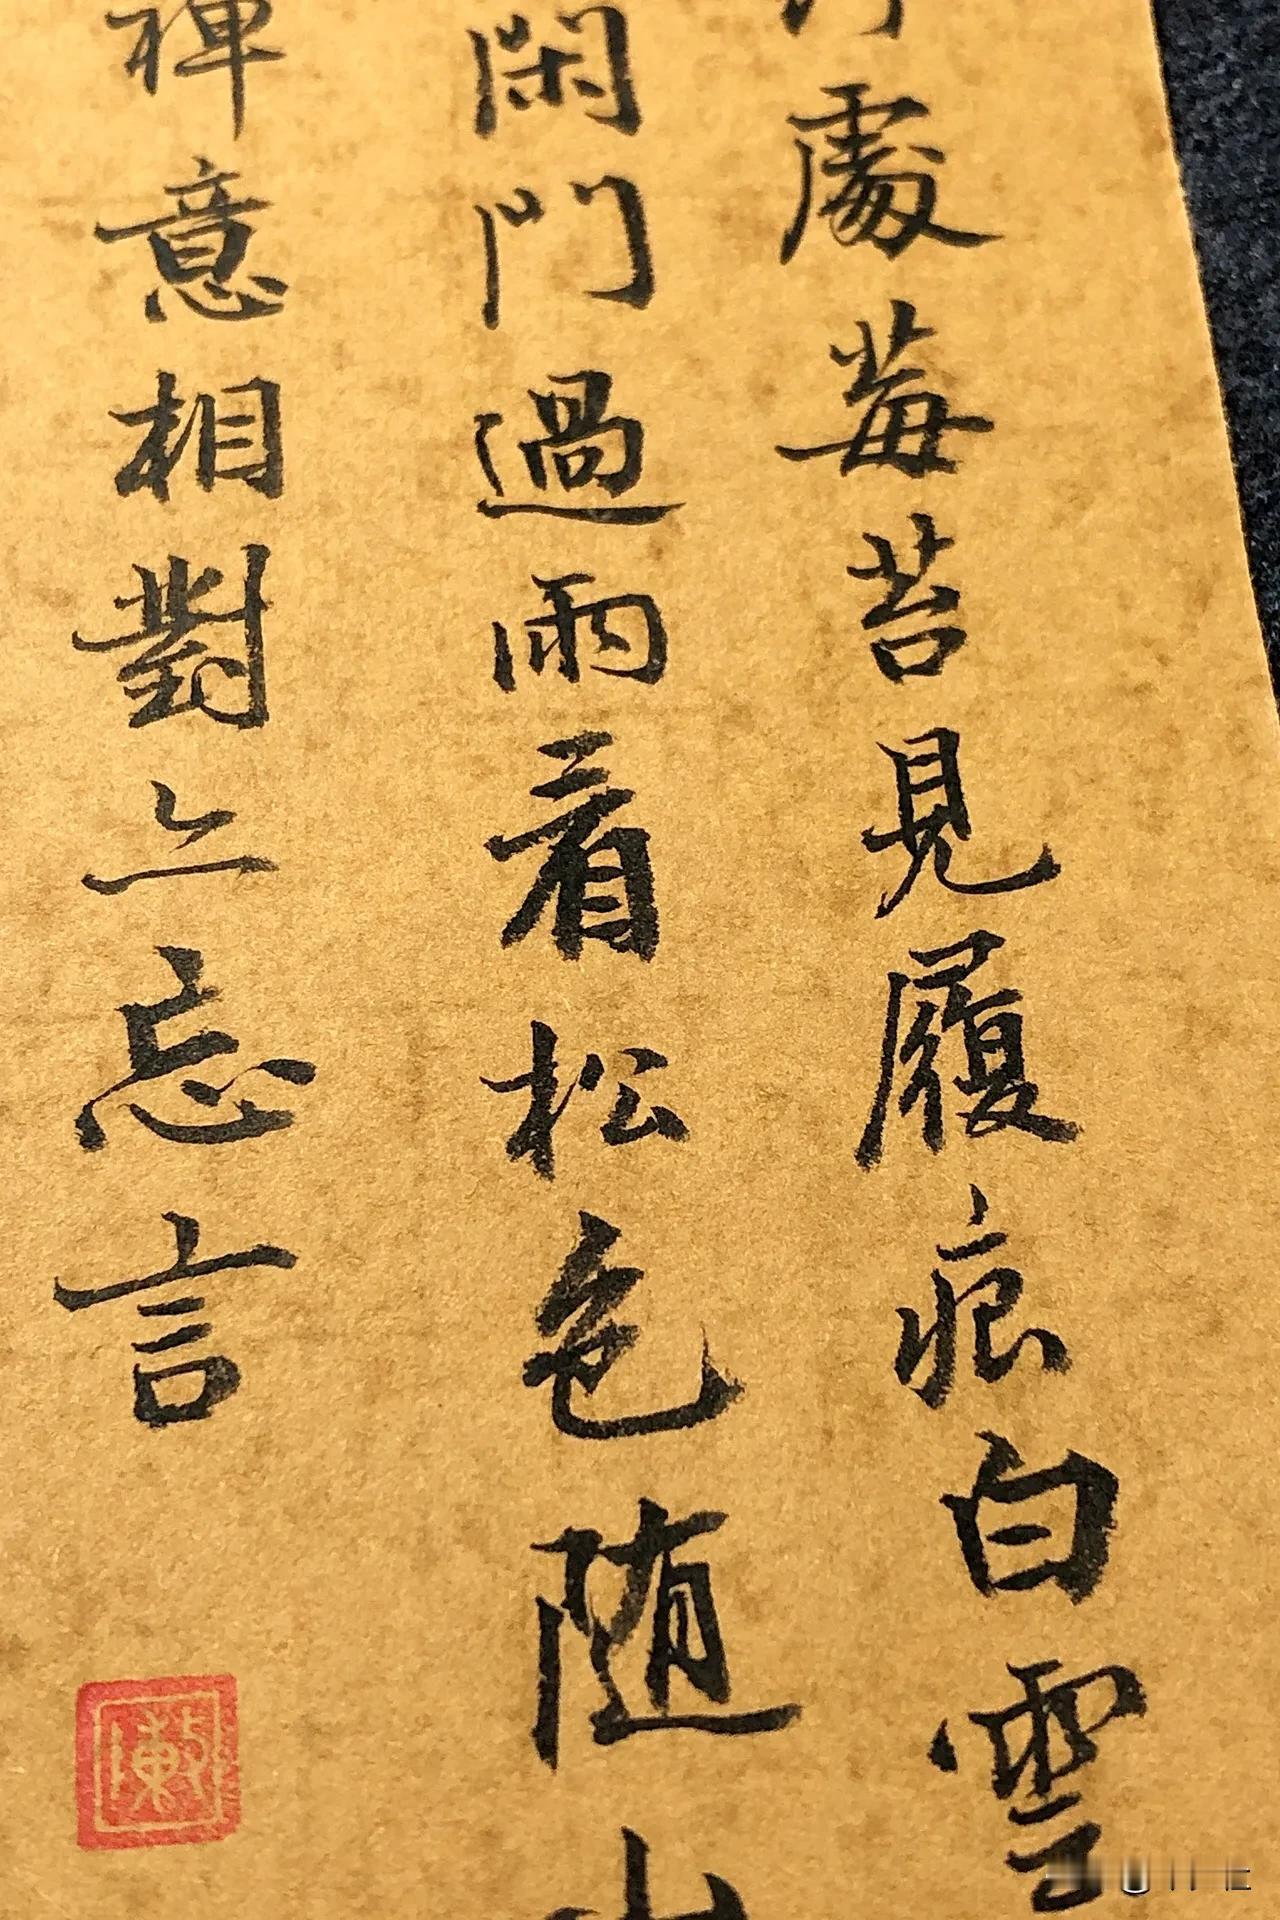 處莓苔見履痕白雲
閑門過雨看松色随
禪意相對亦忘言